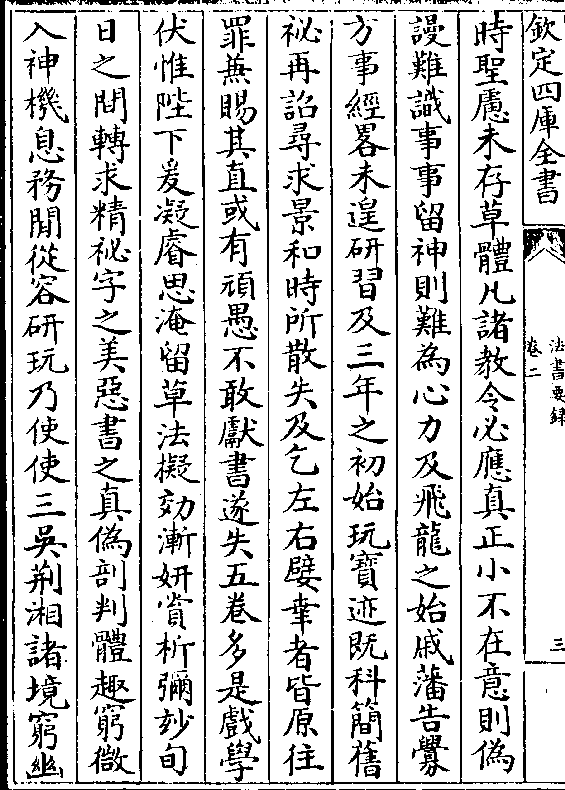 欽定四庫全書
法書要録
卷二
三
時聖慮未存草體凡諸教令必應真正小不在意則偽
謾難識事事留神則難為心力及飛龍之始戚藩告釁
方事經畧未遑研習及三年之初始玩寶迹既科簡舊
祕再詔尋求景和時所散失及乞左右嬖幸者皆原往
罪兼賜其直或有頑愚不敢獻書遂失五卷多是戲學
伏惟陛下爰凝睿思淹留草法擬效漸妍賞析彌妙旬
日之間轉求精祕字之美惡書之真偽剖判體趣窮微
入神機息務閒從容研玩乃使使三吳荆湘諸境窮幽